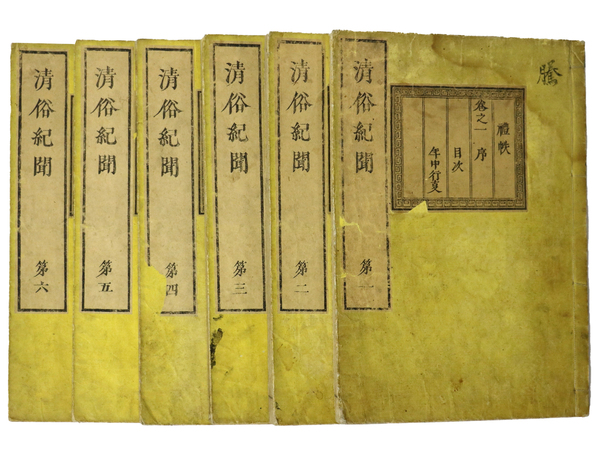 卷之一
禮帙
序
目次
年中行叓
清俗紀聞 第一
清俗紀聞 第二
清俗紀聞 第三
清俗紀聞 第四
清俗紀聞 第五
清俗紀聞 第六